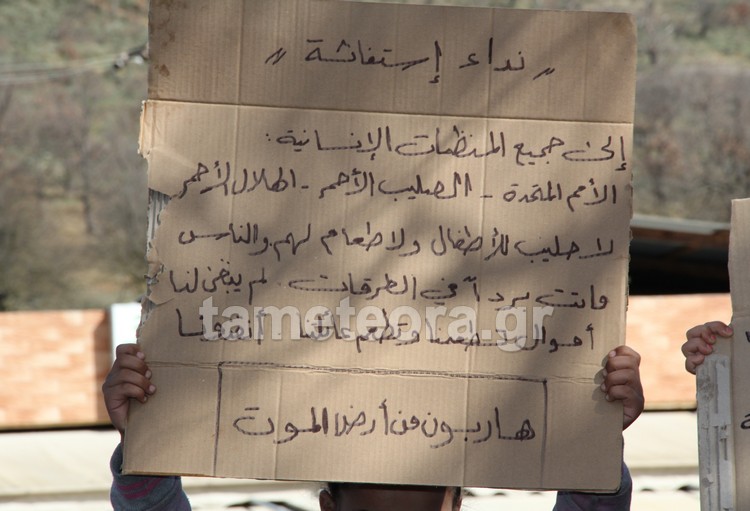 " نداء إستغاثة "
إلى جميع المنظمات الإنسانية :
الأمم المتحدة - الصليب الأحمر - الهلال الأحمر
لا حليب للأطفال ولا طعام لهم والناس
ماتت برداً في الطرقات لم يبقى لنا
أموال لتطعمنا وتطعم عائلتنا أنقذونا
tameteora.gr
هاربون من أرض الموت